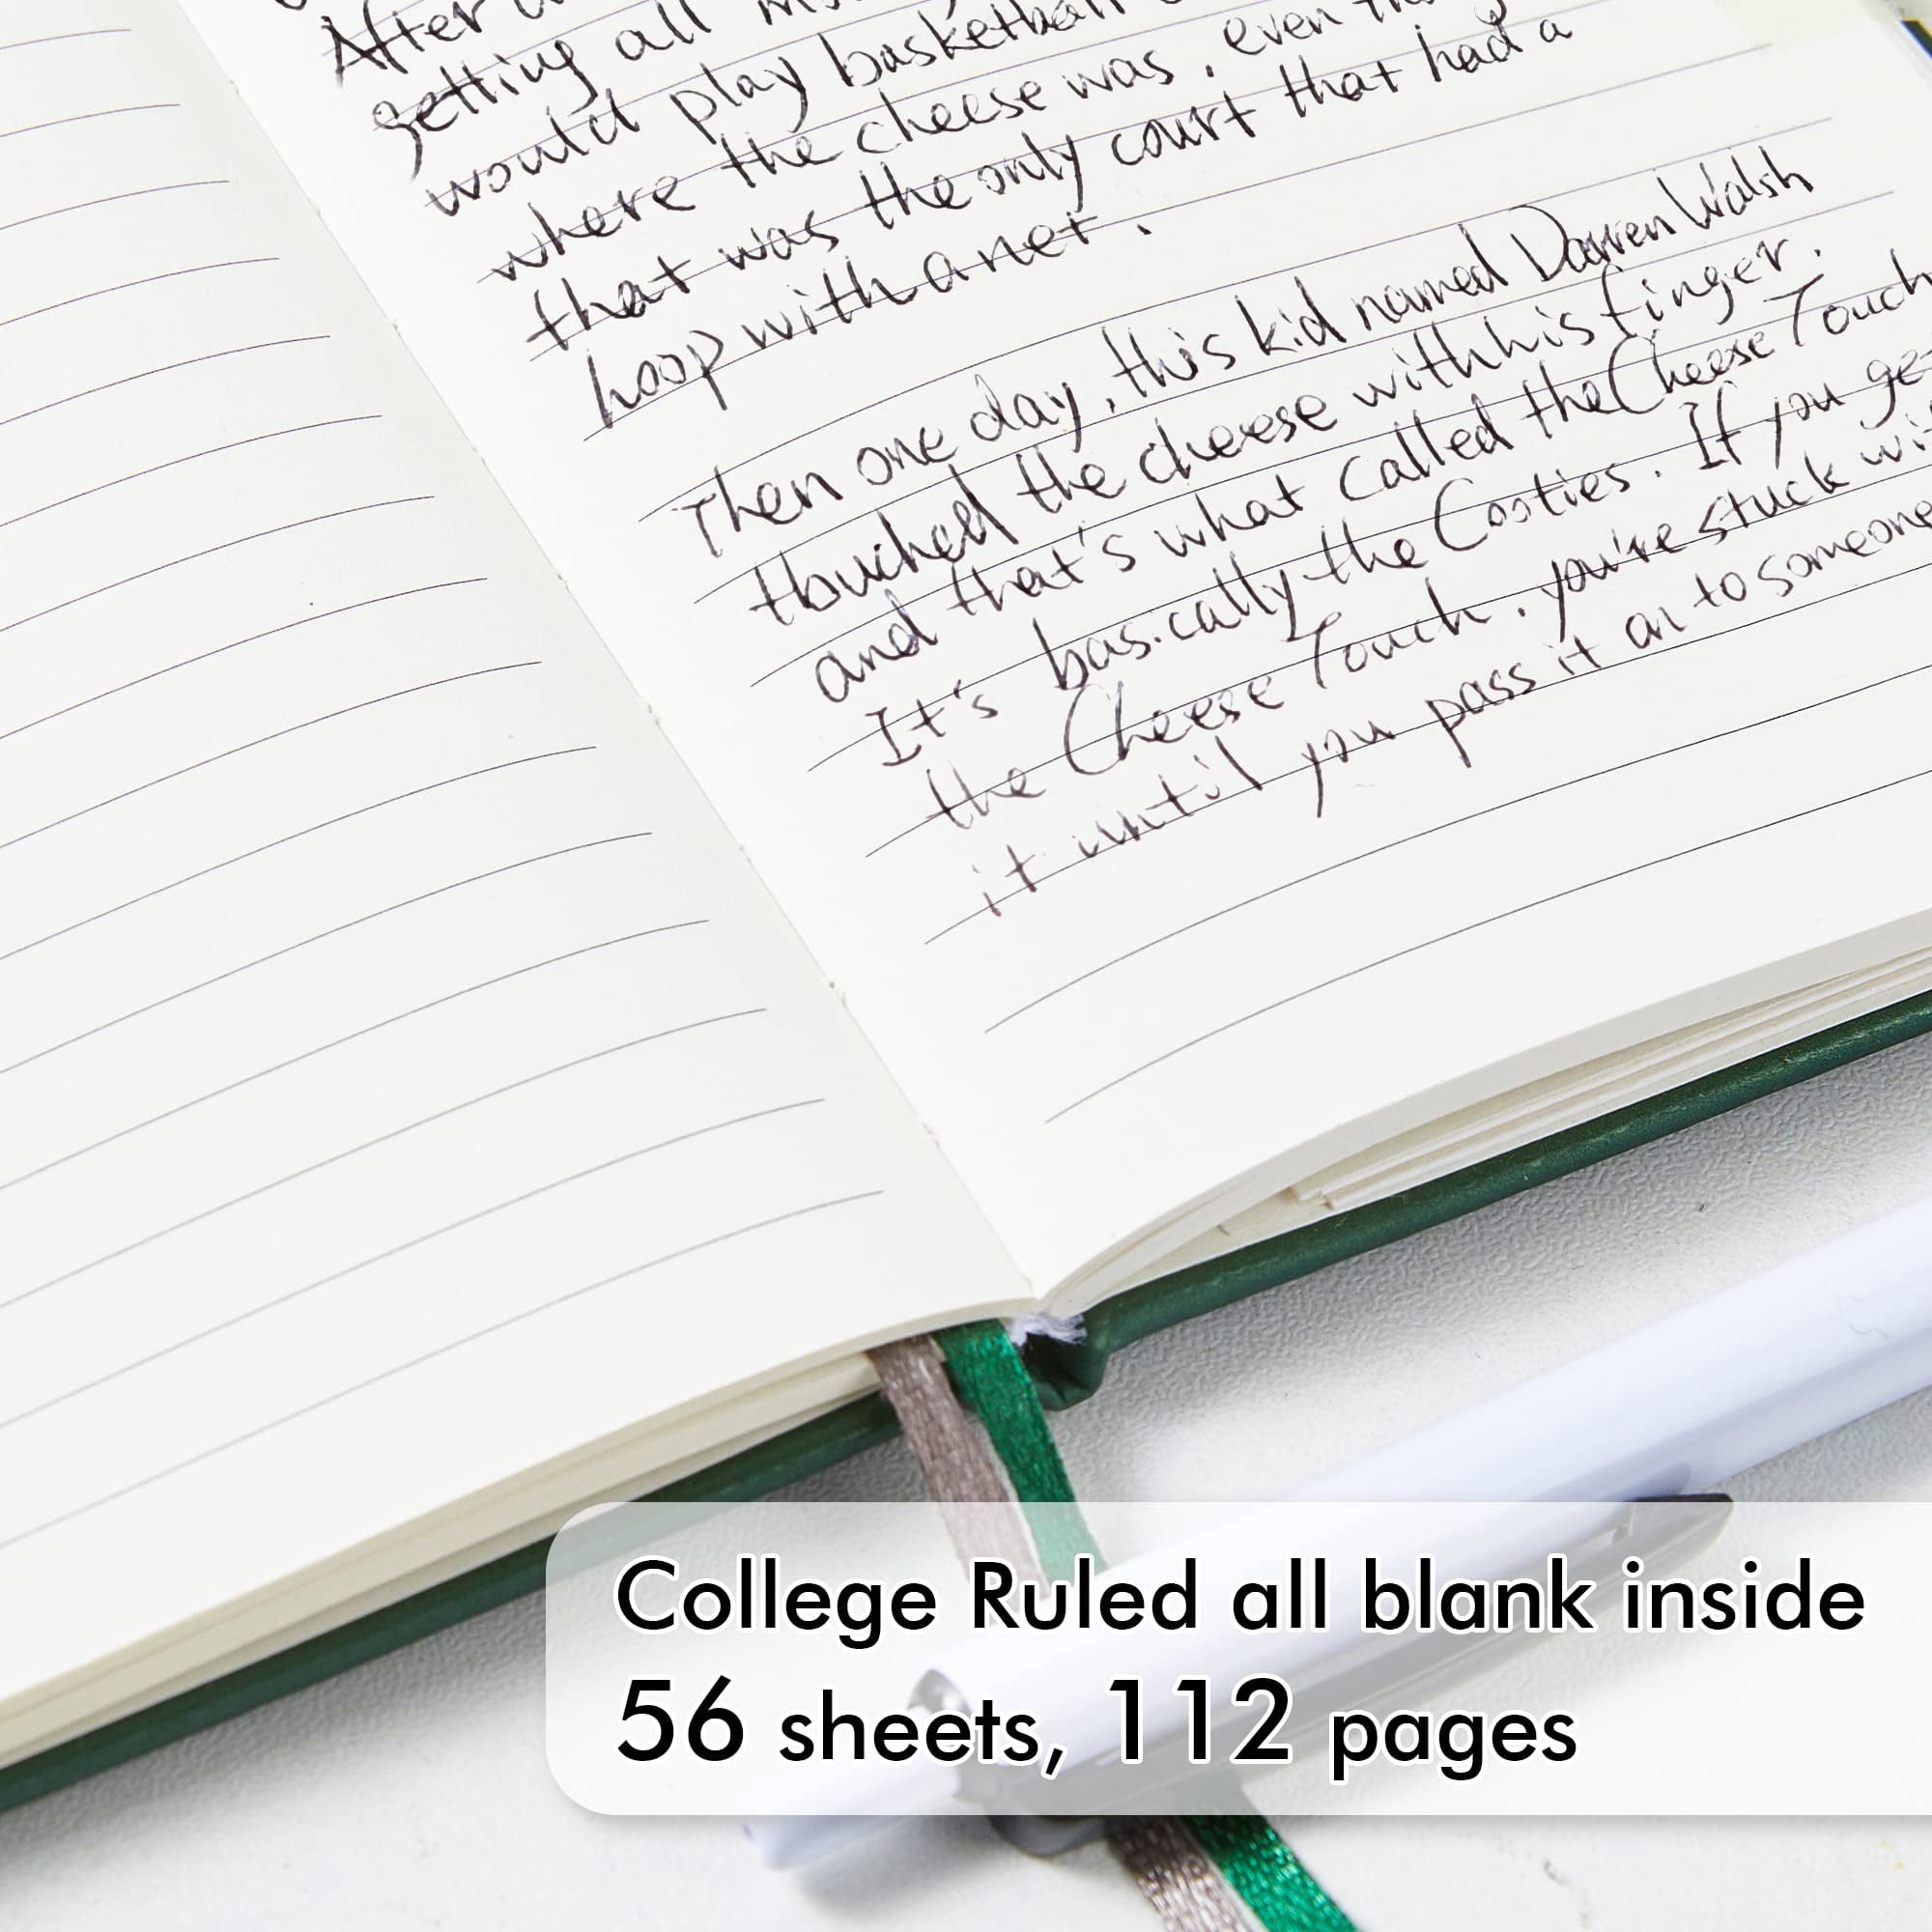 After
getting all
would play basketball
where the cheese was, even
that was the only court that had a
hoop with a net.
Then one day, this kid named Darren Walsh
touched the cheese with his finger.
and that's what called the Cheese Touch
It's basically the Cooties. If you get
the Cheese Touch, you're stuck
it until you pass it on to someone
College Ruled all blank inside
56 sheets, 112 pages